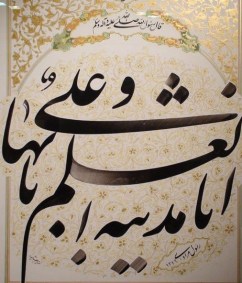 قال رسول الله صلی الله علیه وآله وسلم
انا مدینة العلم وعلی بابها